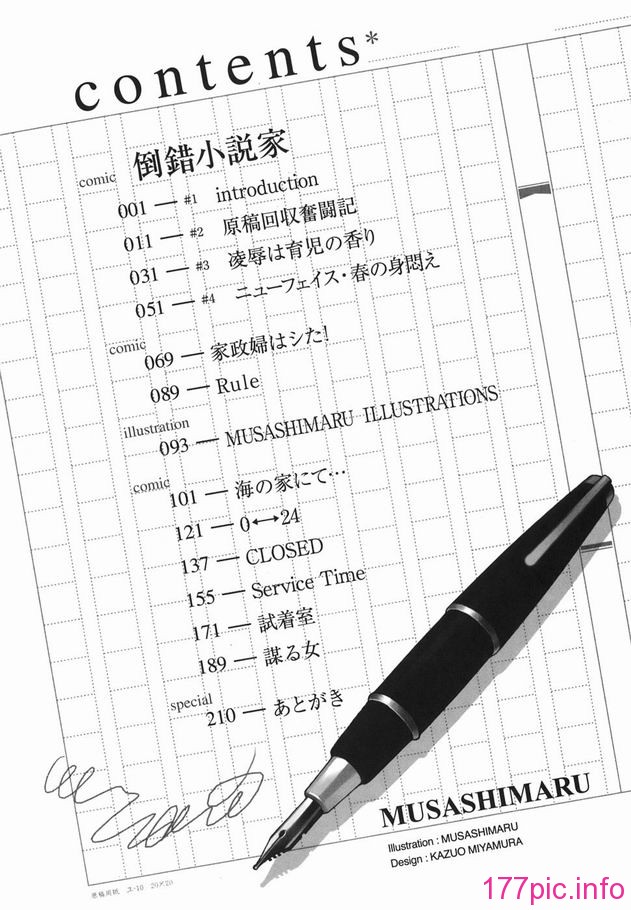 contents*
comic 倒錯小説家
001 — #1 introduction
011 — #2 原稿回収奮闘記
031 — #3 凌辱は育児の香り
051 — #4 ニューフェイス・春の身悶え
comic
069 — 家政婦はシた!
089 — Rule
illustration
093 — MUSASHIMARU ILLUSTRATIONS
comic
101 — 海の家にて…
121 — 0⟷24
137 — CLOSED
155 — Service Time
171 — 試着室
189 — 謀る女
special
210 — あとがき
MUSASHIMARU
Illustration : MUSASHIMARU
Design : KAZUO MIYAMURA
原稿用紙 ユ-10 20×20
177pic.info